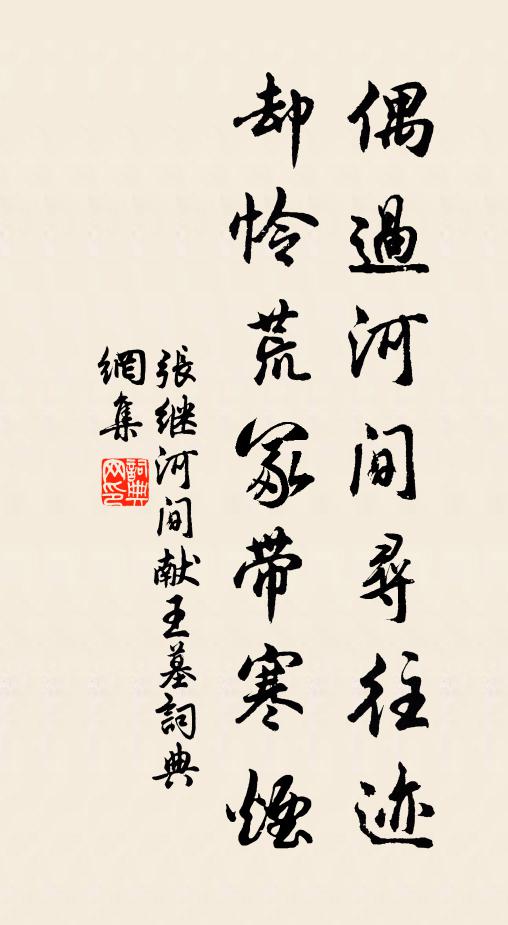 偶過河间尋往迹
却怜荒冢带寒煙
張継河间献王墓詞典
網集
詞典网印